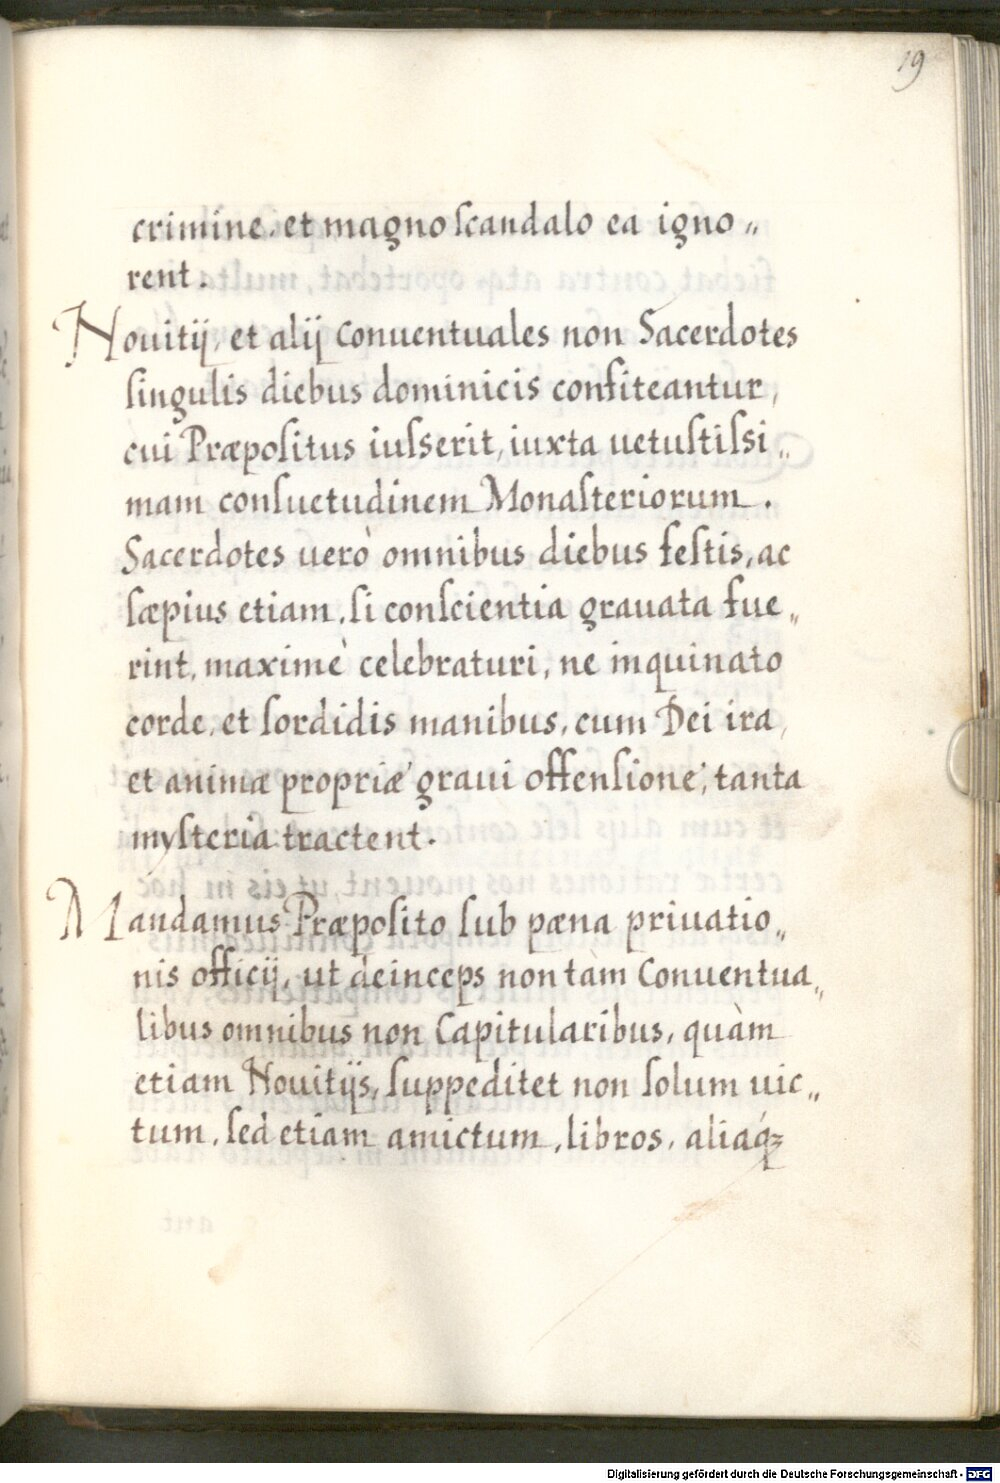 19
crimine, et magno ſcandalo ea igno„
rent.
Nouitij, et alij conuentuales non Sacerdotes
ſingulis diebus dominicis confiteantur,
cui Præpoſitus iuſserit, iuxta uetuſtiſsi„
mam conſuetudinem Monaſteriorum.
Sacerdotes uerò omnibus diebus feſtis, ac
ſæpius etiam, ſi conſcientia grauata fue„
rint, maximè celebraturi, ne inquinato
corde, et ſordidis manibus, cum Dei ira,
et animæ propriæ graui offenſione, tanta
myſteria tractent.
Mandamus Præpoſito ſub pæna priuatio„
nis officij, ut deinceps non tàm Conuentua„
libus omnibus non Capitularibus, quàm
etiam Nouitijs, ſuppeditet non ſolum uic„
tum, ſed etiam amictum, libros, aliaqꝫ
Digitalisierung gefördert durch die Deutsche Forschungsgemeinschaft - DFG